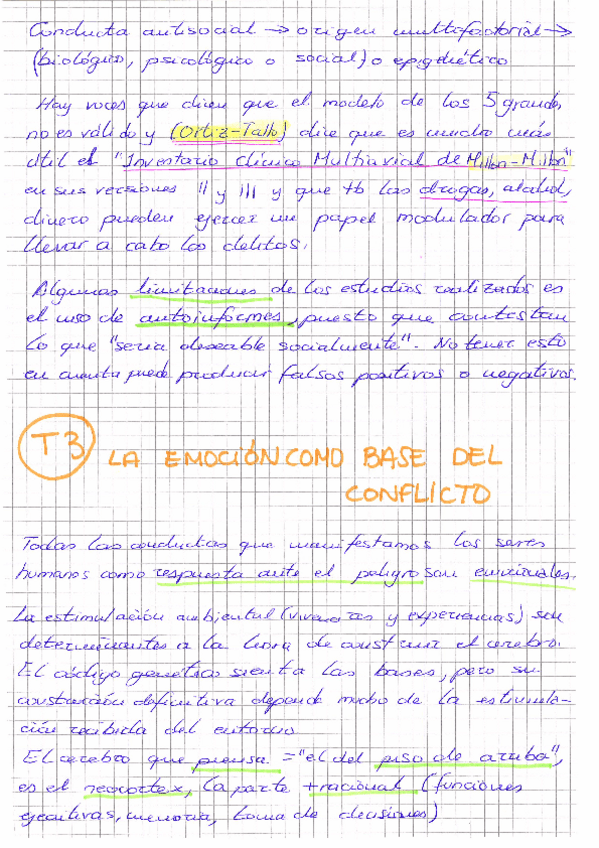 Conducta antisocial → origen multifactorial →
(biológico, psicológico o social) o epigenético
Hay voces que dicen que el modelo de los 5 grandes
no es válido y (Ortiz-Tallo) dice que es mucho más
útil el "Inventario clínico Multiaxial de Millon-Millon"
en sus versiones II y III y que tb las drogas, alcohol,
dinero pueden ejercer un papel modulador para
llevar a cabo los delitos.
Algunas limitaciones de los estudios realizados es
el uso de autoinformes, puesto que contestan
lo que "sería deseable socialmente". No tener esto
en cuenta puede producir falsos positivos o negativos.
T3 LA EMOCIÓN COMO BASE DEL
CONFLICTO
Todas las conductas que manifestamos los seres
humanos como respuesta ante el peligro son emocionales.
La estimulación ambiental (vivencias y experiencias) son
determinantes a la hora de construir el cerebro.
El código genético sienta las bases, pero su
construcción definitiva depende mucho de la estimula-
ción recibida del entorno
El cerebro que piensa = "el del piso de arriba",
es el neocortex, la parte + racional (funciones
ejecutivas, memoria, toma de decisiones)